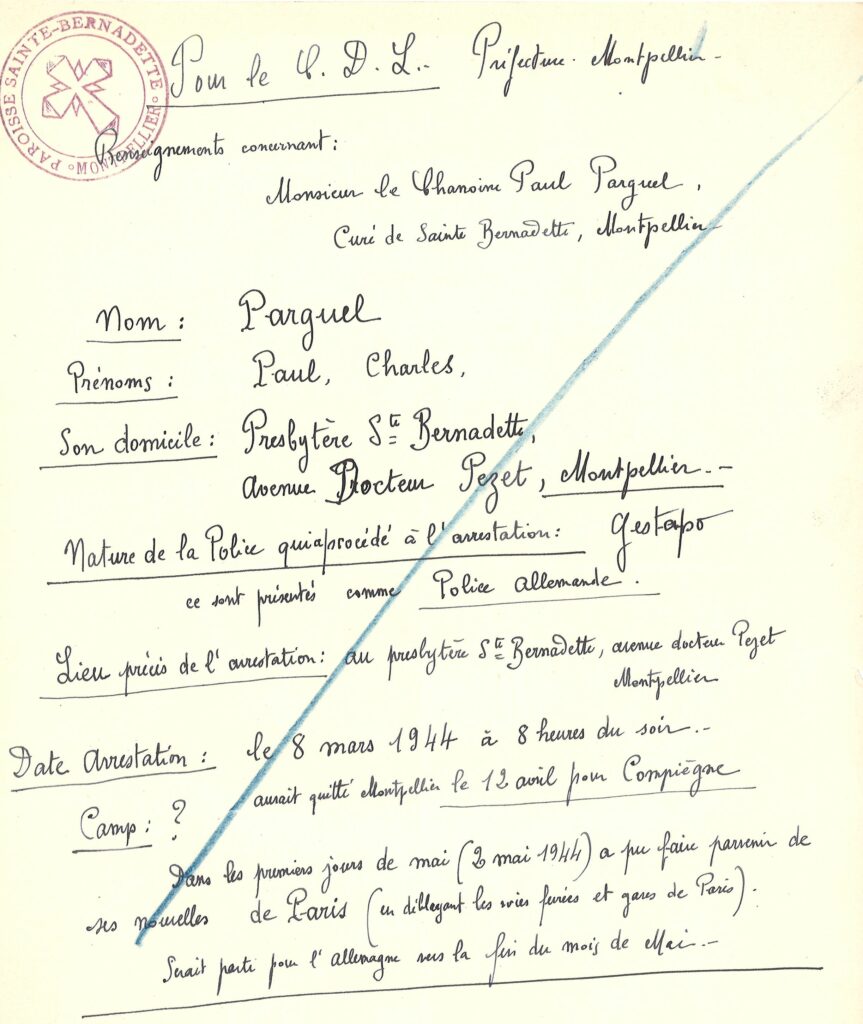 PAROISSE SAINTE-BERNADETTE
MONTPELLIER
Pour le C. D. L.- Préfecture. Montpellier-
Renseignements concernant :
Monsieur le Chanoine Paul Parguel,
Curé de Sainte Bernadette, Montpellier-
Nom : Parguel
Prénoms : Paul, Charles,
Son domicile : Presbytère Ste Bernadette,
avenue Docteur Pezet, Montpellier.-
Nature de la Police qui a procédé à l'arrestation : Gestapo
ce sont présentés comme Police allemande.
Lieu précis de l'arrestation : au presbytère Ste Bernadette, avenue docteur Pezet
Montpellier
Date Arrestation : le 8 mars 1944 à 8 heures du soir.-
aurait quitté Montpellier le 12 avril pour Compiègne
Camp : ?
Dans les premiers jours de mai (2 mai 1944) a pu faire parvenir de
ses nouvelles de Paris (en déblayant les voies ferrées et gares de Paris).
Serait parti pour l'Allemagne vers la fin du mois de Mai.-